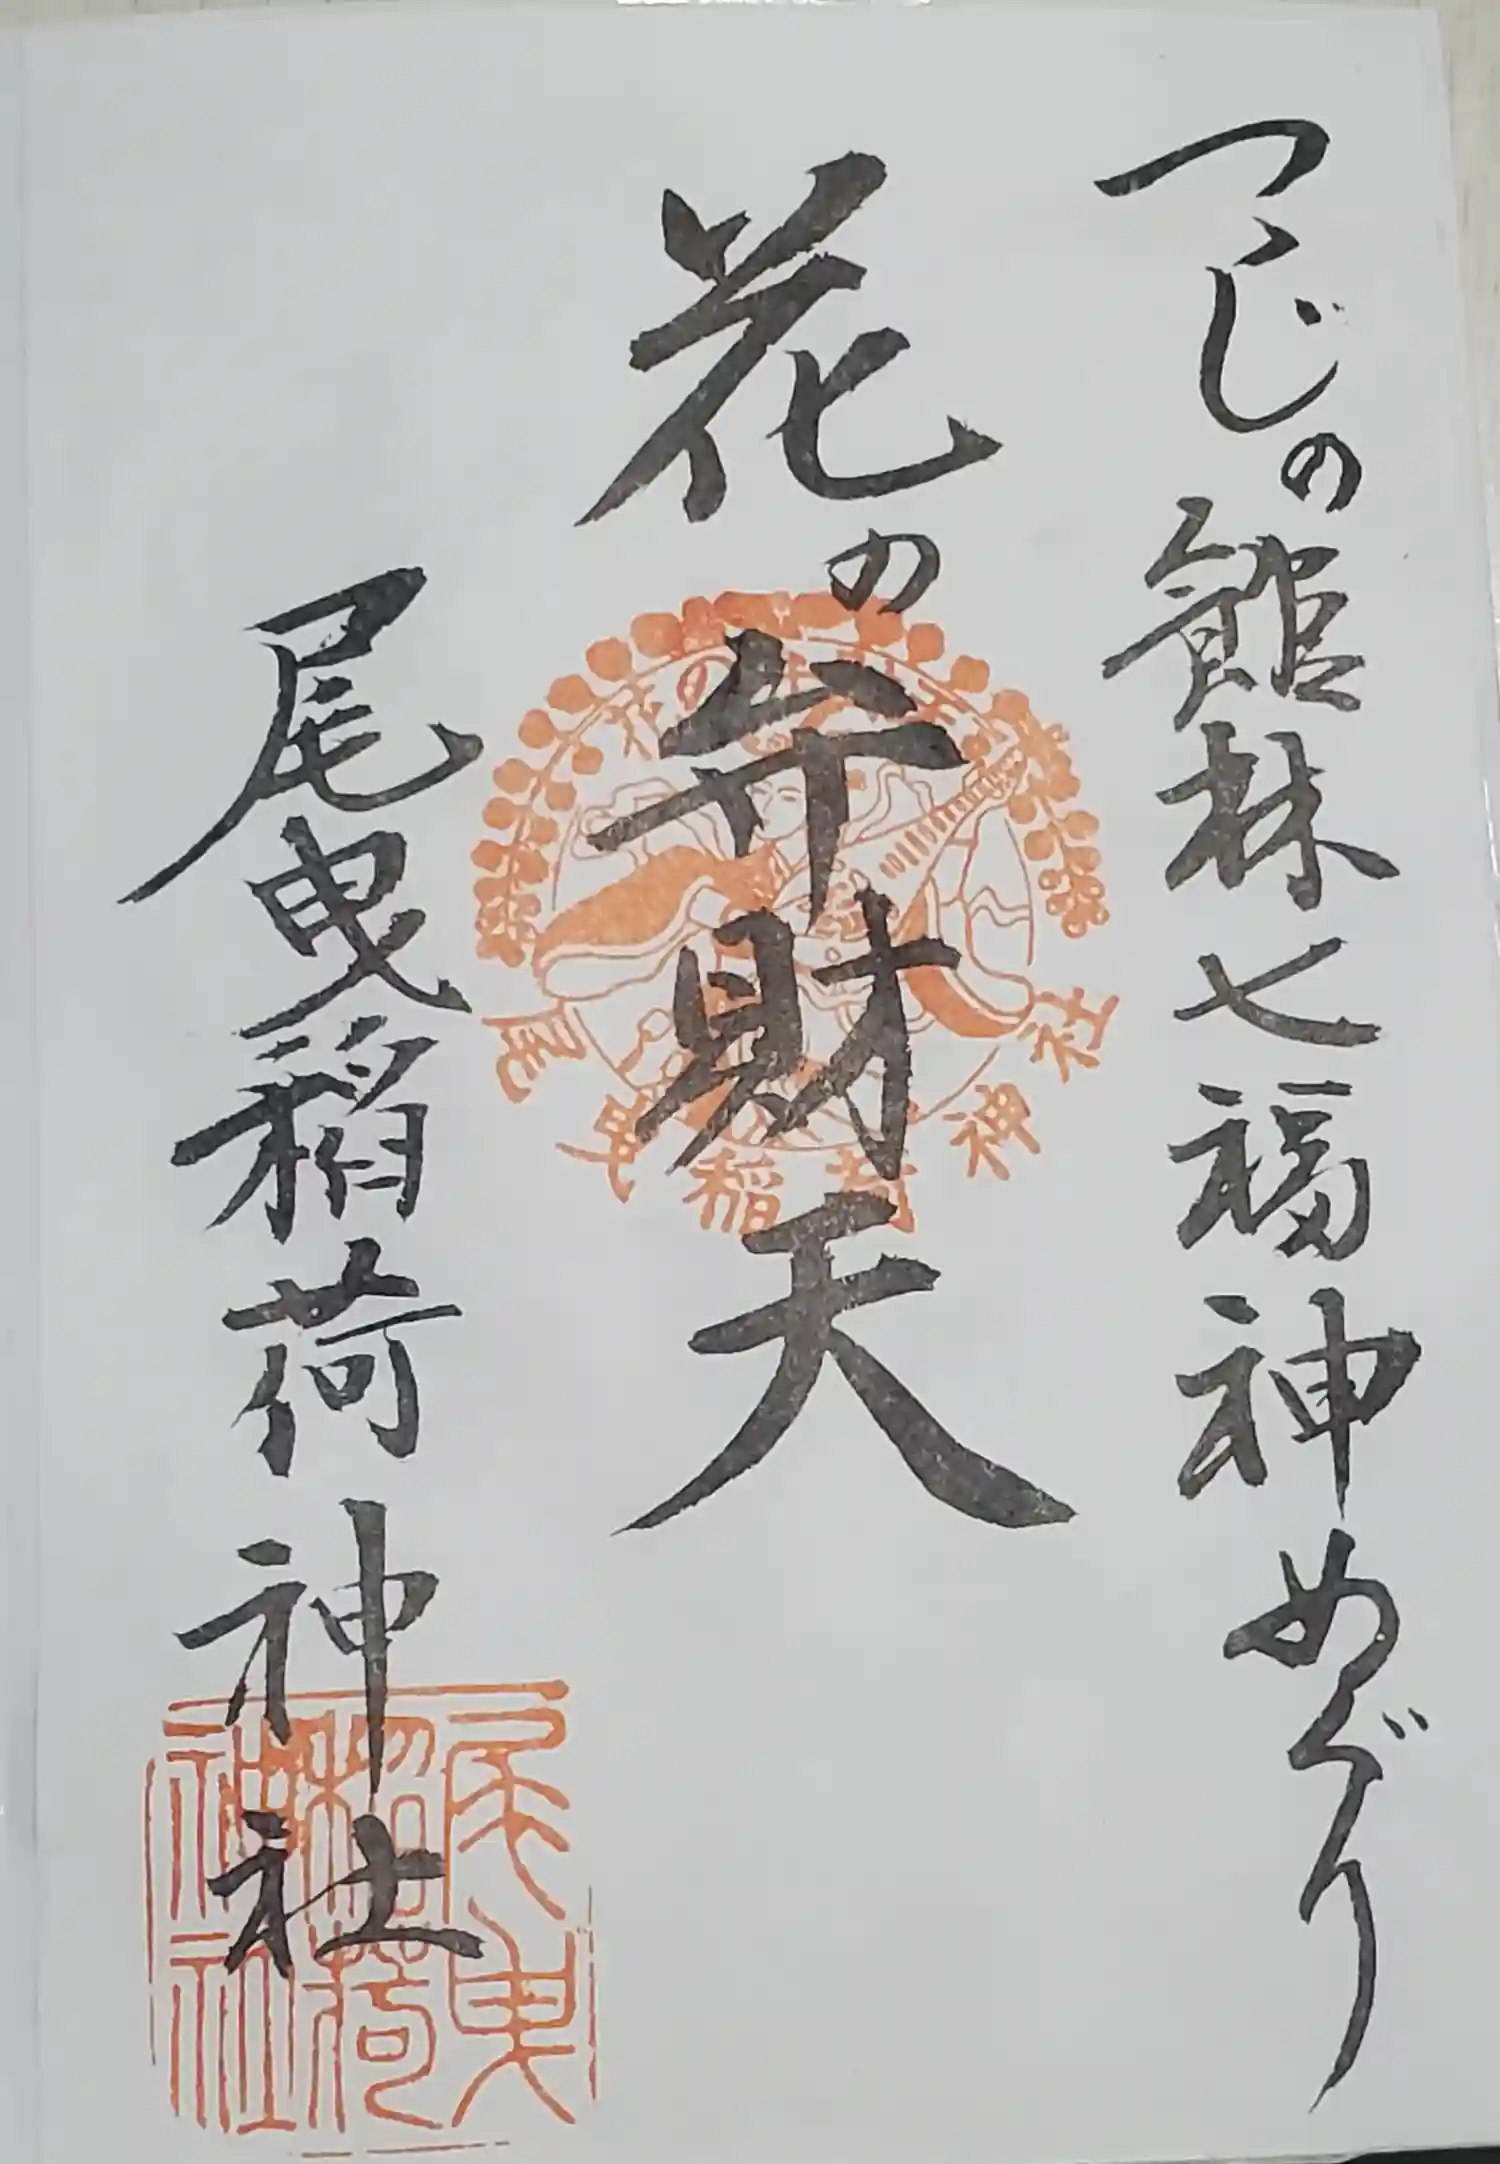 つゝじの館林七福神めぐり
花の弁財天
尾曳稲荷神社
花の弁財天
尾曳稲荷神社
尾曳稲荷神社